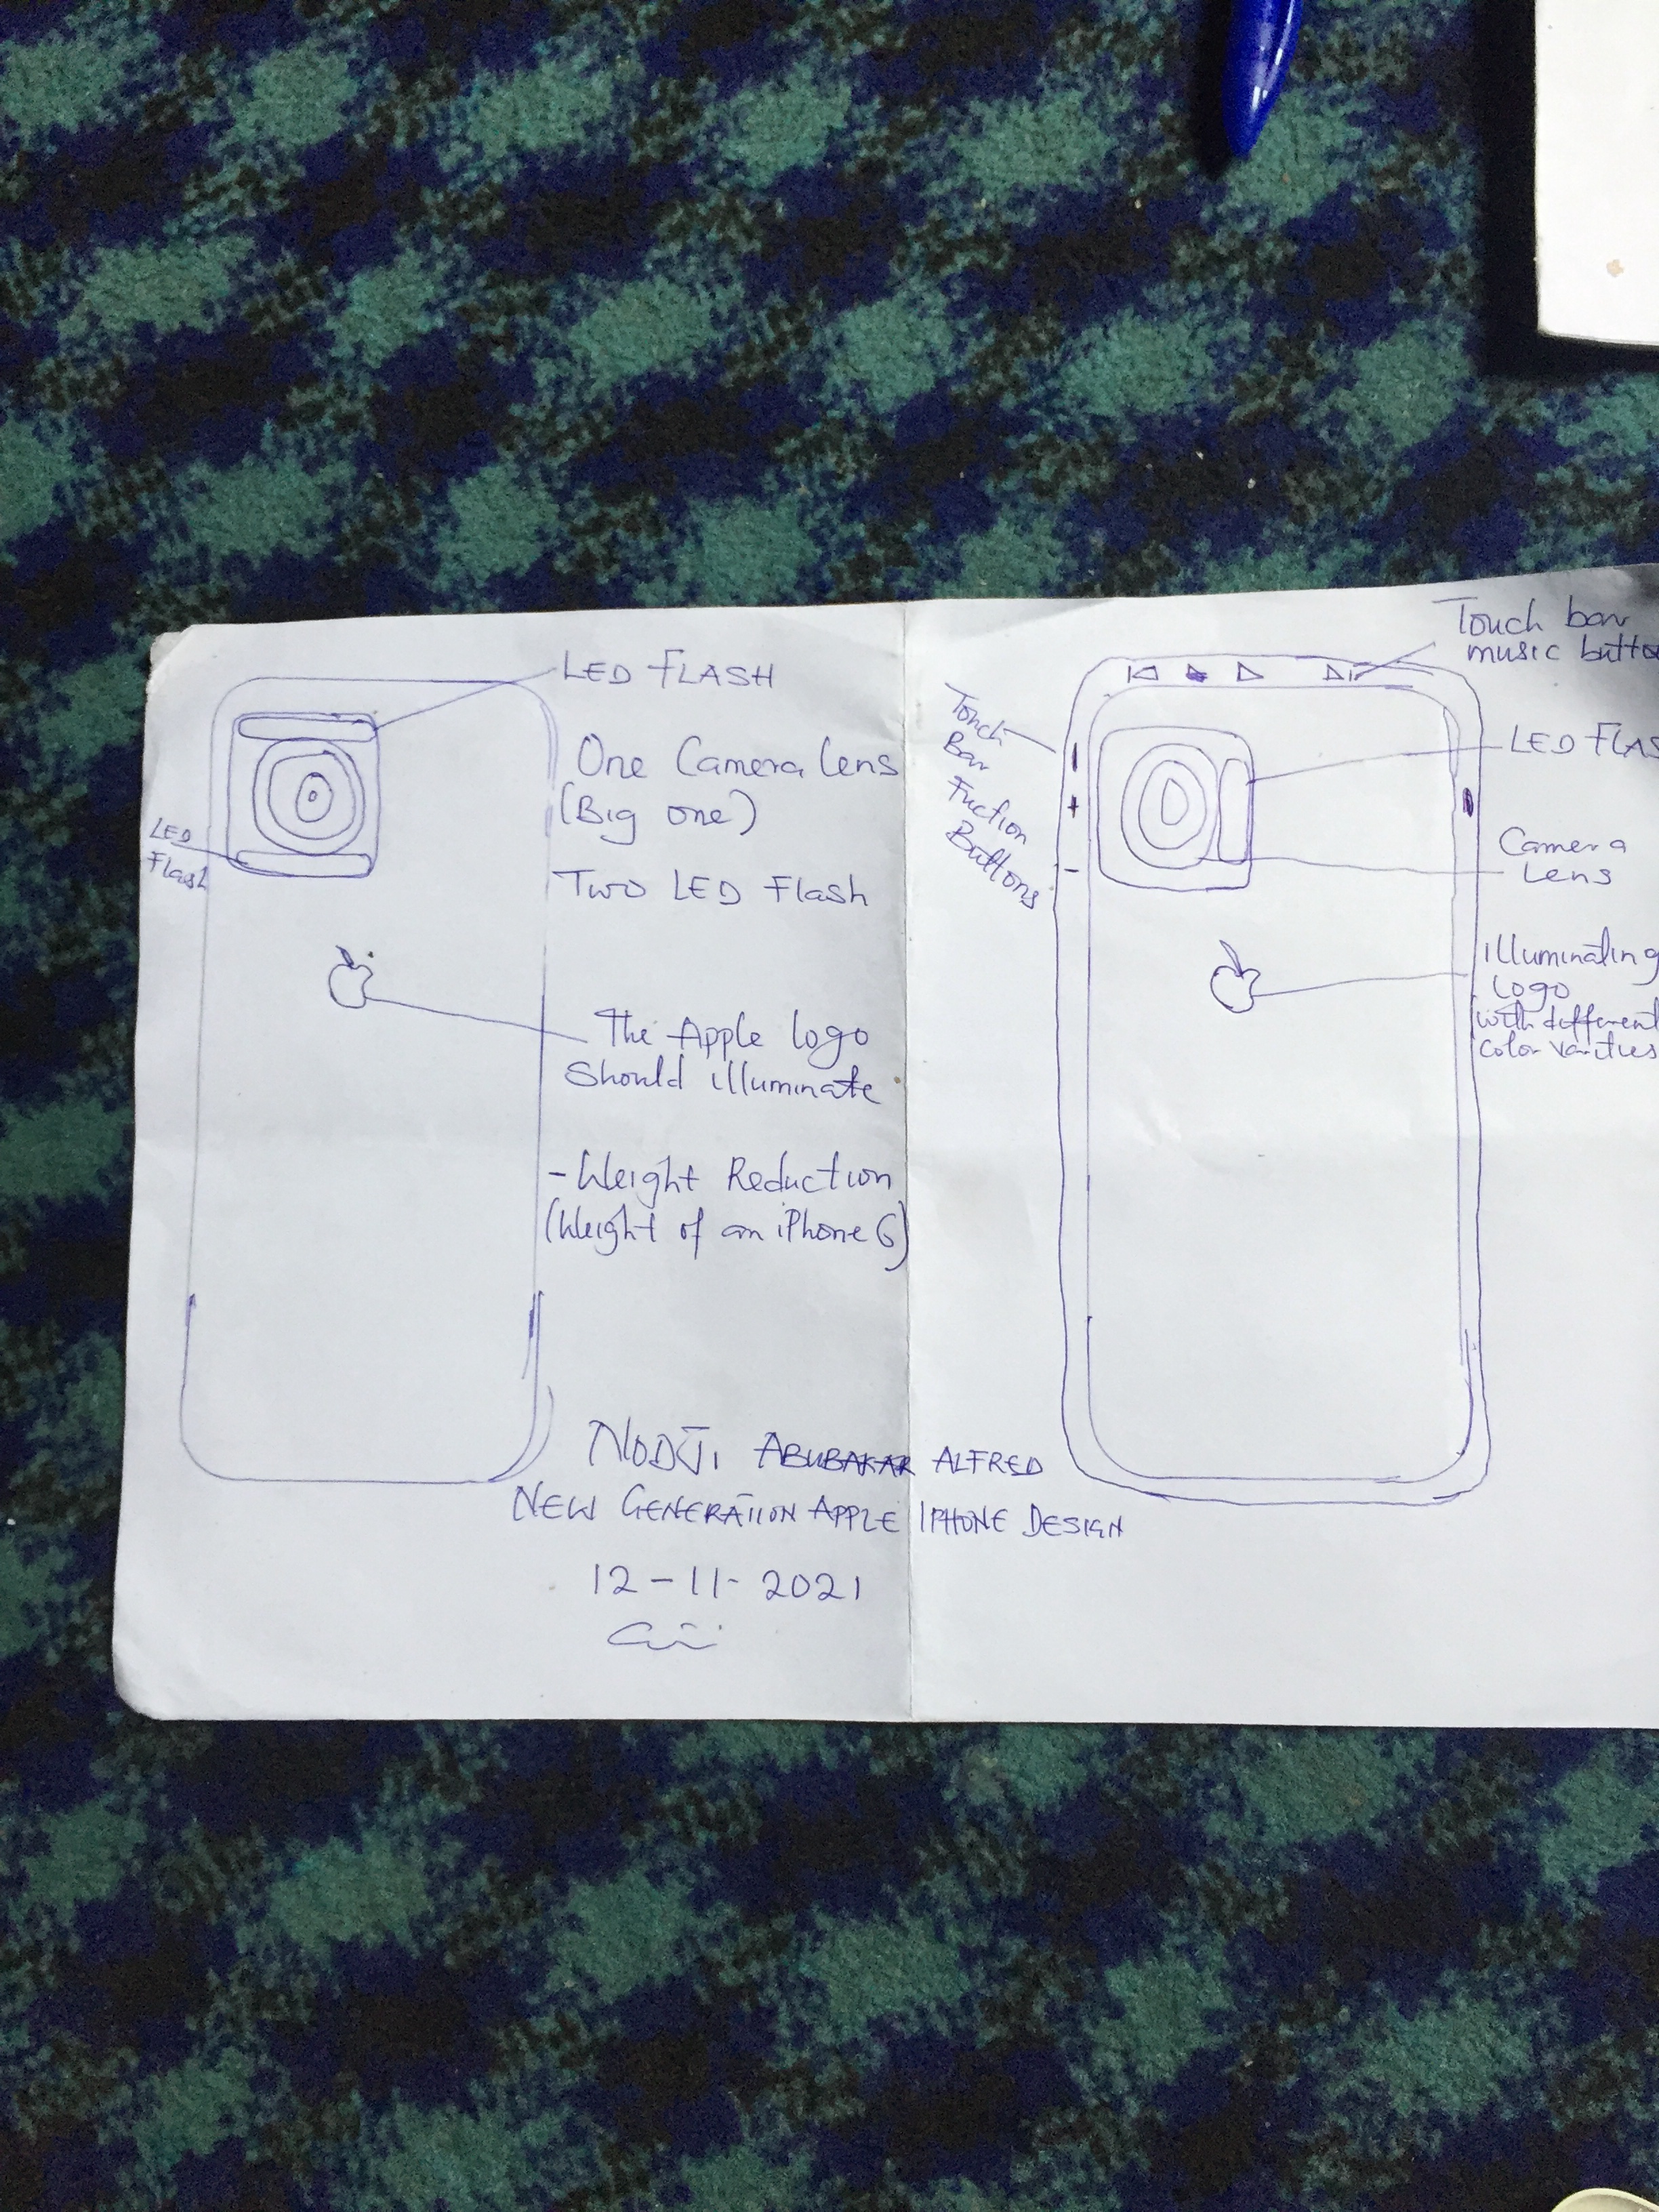 LED FLASH
One Camera lens
(Big one)
LED
Flash
Two LED Flash
The Apple logo
Should illuminate
- Weight Reduction
(Weight of an iPhone 6)
Touch bar
music butto
Touch
Bar
Fuction
Buttons
+
-
LED FLAS
Camera
Lens
illuminating
logo
with different
color varities
ABUBAKAR ALFRED
NEW GENERATION APPLE IPHONE DESIGN
12-11-2021